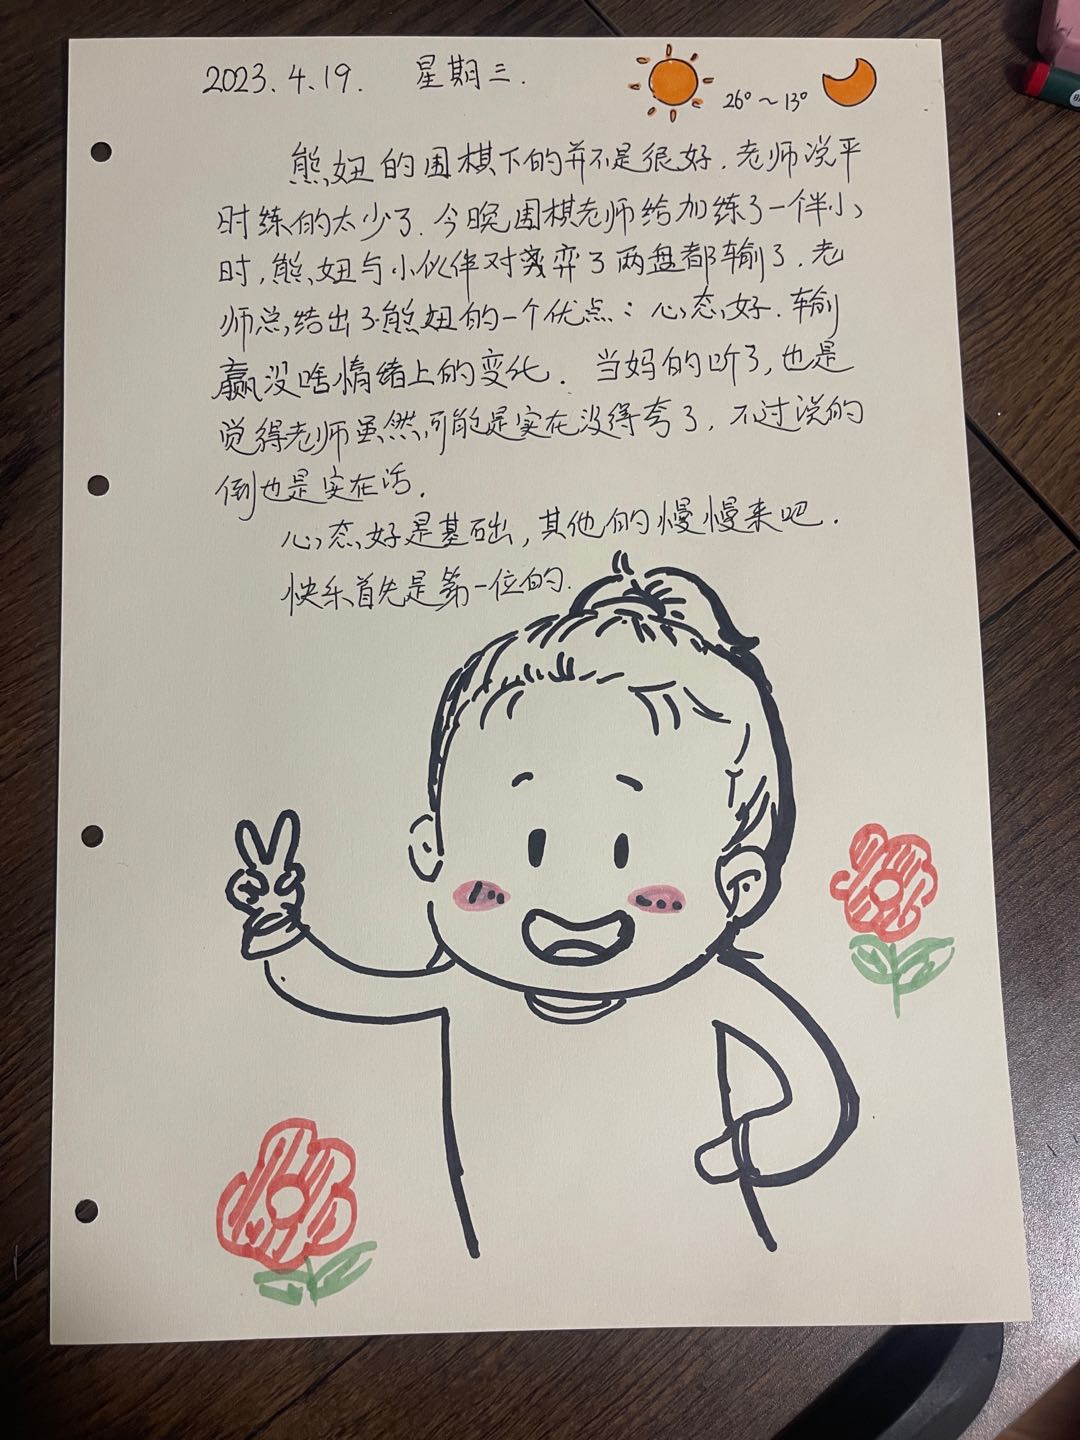 2023.4.19. 星期三.
26°~13°
熊妞的围棋下的并不是很好.老师说平
时练的太少了.今晚围棋老师给加练了一个半小
时,熊妞与小伙伴对弈了两盘都输了.老
师总结出了熊妞的一个优点:心态好.输
赢没啥情绪上的变化. 当妈的听了,也是
觉得老师虽然可能是实在没得夸了.不过说的
倒也是实在话.
心态好是基础,其他的慢慢来吧.
快乐首先是第一位的.